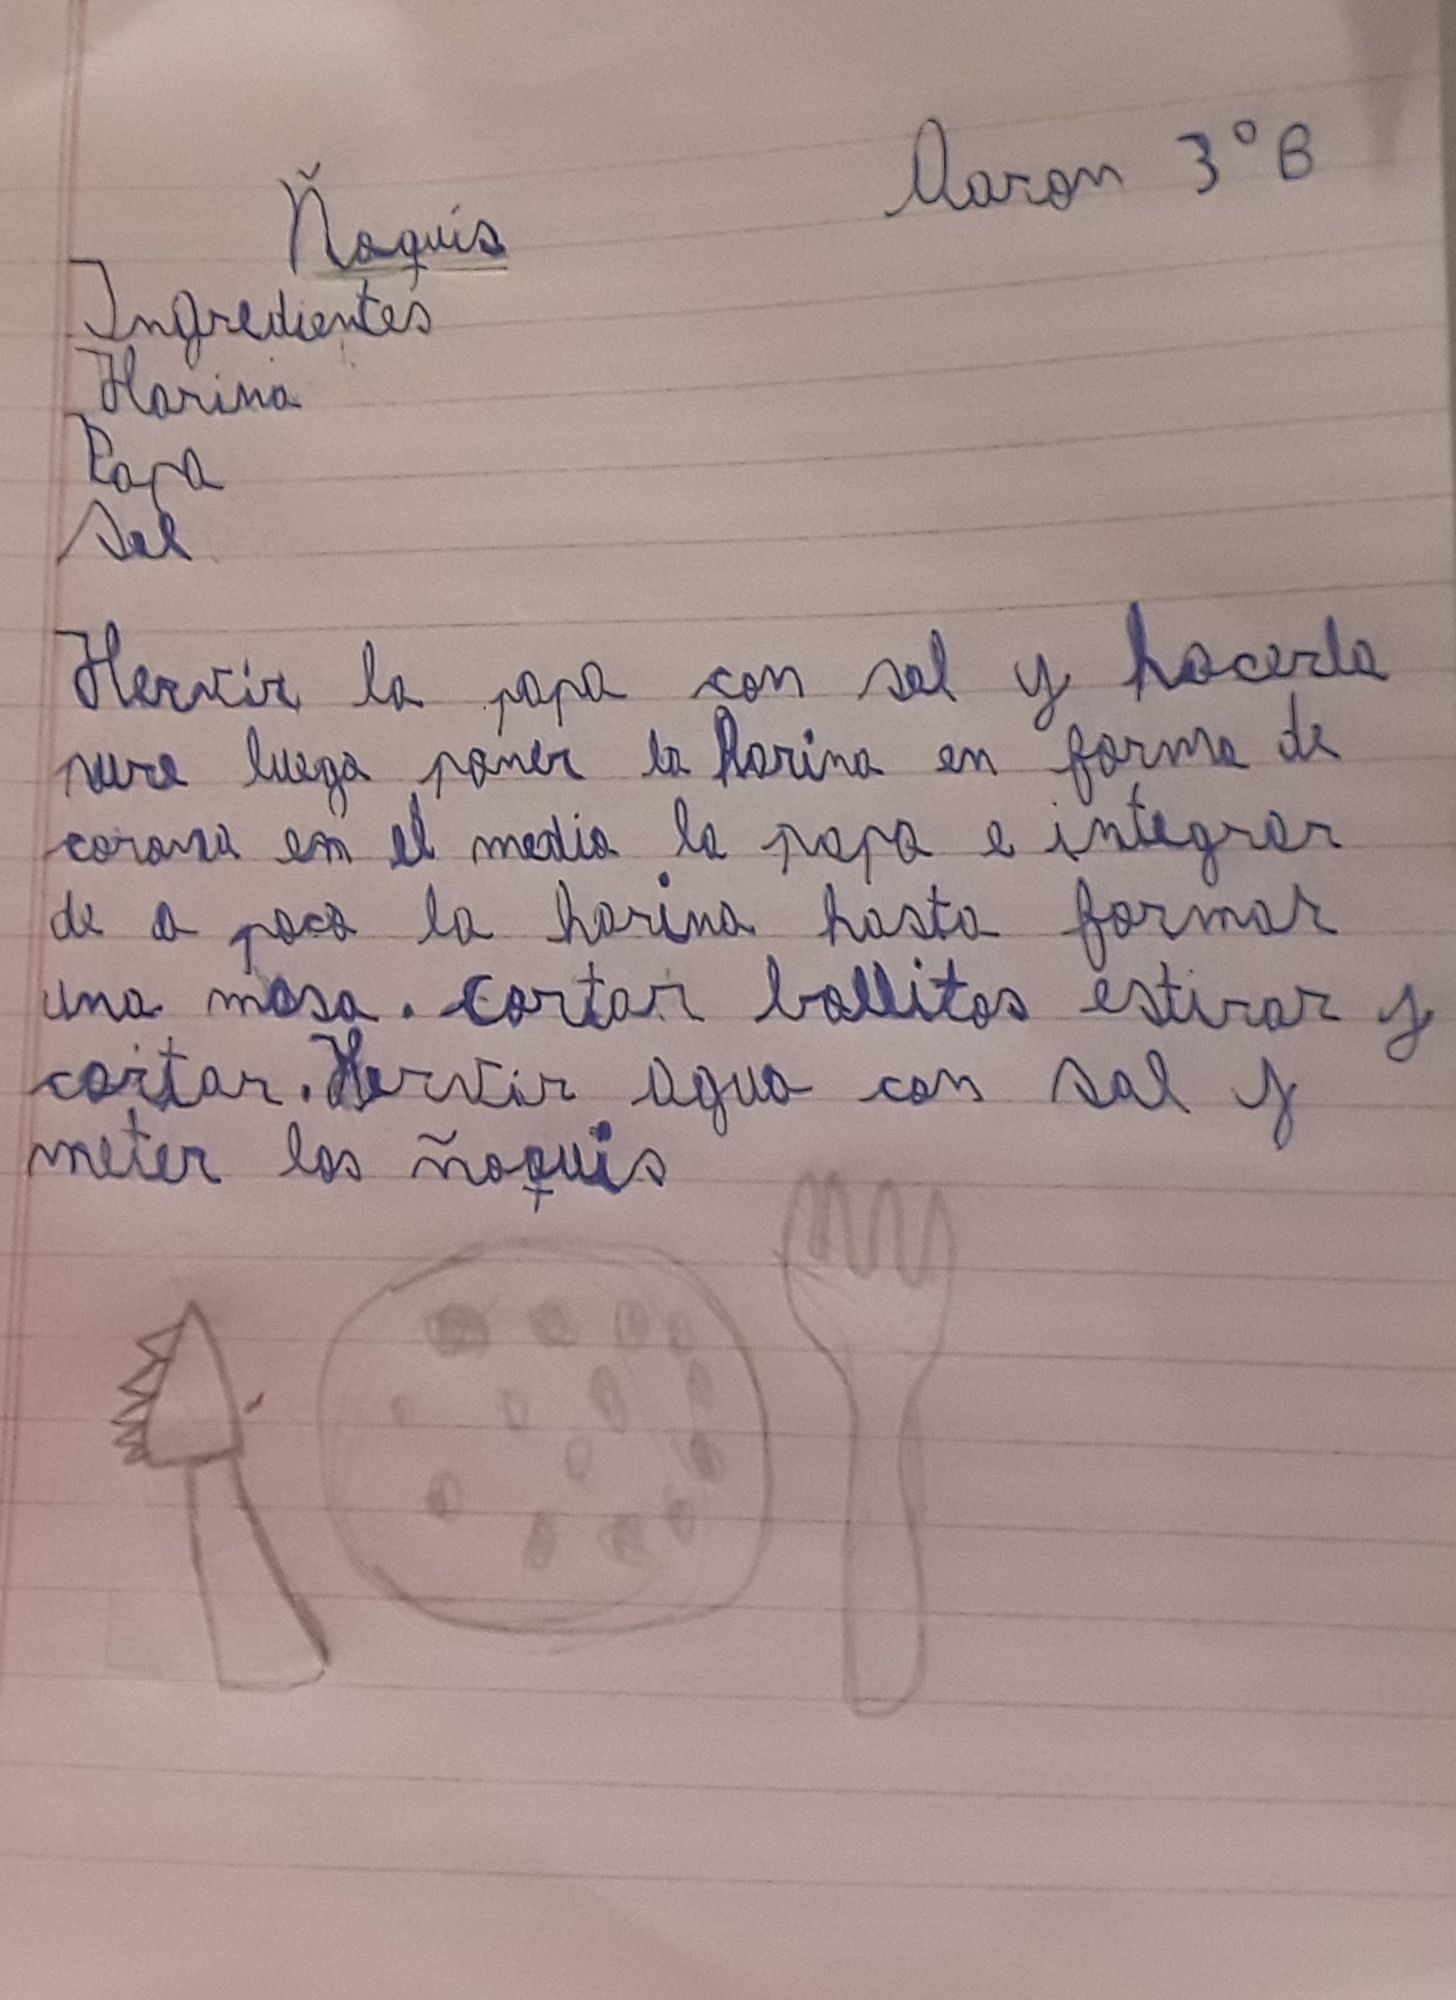 Aaron 3° B
Ñoquis
Ingredientes
Harina
Papa
Sal
Hervir la papa con sal y hacerla
pure luego poner la harina en forma de
corona en el medio la papa e integrar
de a poco la harina hasta formar
una masa. cortar bollitos estirar y
cortar. Hervir agua con sal y
meter los ñoquis